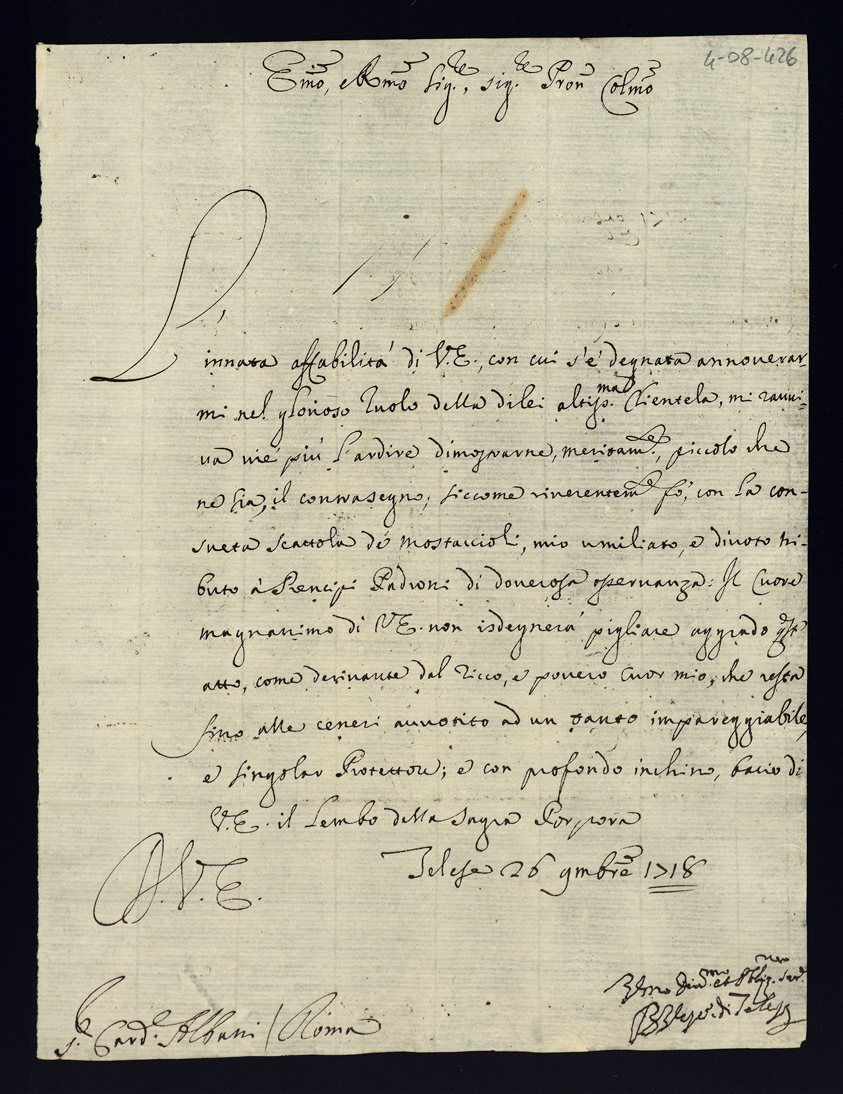 4-08-426
Emo, e Rmo Sig.re, sig.re Pron Colmo
L'innata affabilità di V.E., con cui s'è degnata annoverar
mi nel glorioso Ruolo della dilei altiss.ma Clientela, mi ravvi=
va viè più l'ardire dimostrarne, meritam.te, piccolo che
ne sia, il contrasegno; siccome riverentem.te fò, con la con-
sueta scattola dè mostaccioli, mio umiliato, e divoto tri-
buto à Prencipi Padroni di doverosa osservanza: Il Cuore
magnanimo di V.E. non isdegnerà pigliare aggrado qst
atto, come derivante dal ricco, e povero cuor mio, che resta
sino alle ceneri avvotito ad un tanto impareggiabile,
e singolar Protettore; e con profondo inchino, bacio di
V.E. il Lembo della Sagra Porpora
Telese 26 9mbre 1718
D. V. E.
Dev.mo et Obblig.
di Telese
S.r Card.e Albani / Roma